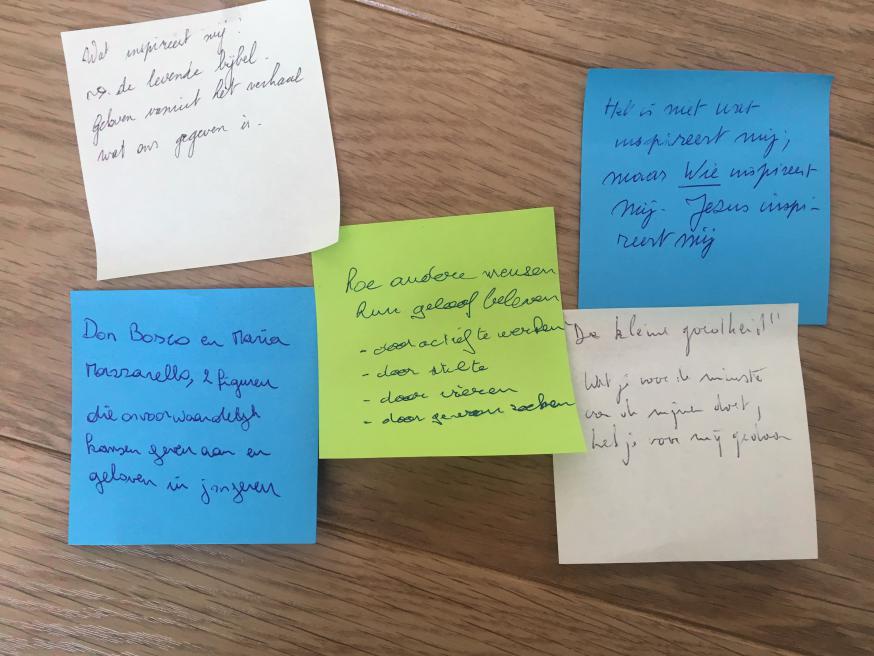 Wat inspireert mij?
→ de levende bijbel.
geloven vanuit het verhaal
wat ons gegeven is.
Het is niet wat
inspireert mij,
maar Wie inspireert
mij. Jezus inspi-
reert mij
Hoe andere mensen
hun geloof beleven
- door actief te werken
- door stilte
- door vieren
- door gewoon zoeken
Don Bosco en Maria
Mazzarello, 2 figuren
die onvoorwaardelijk
kansen geven aan en
geloven in jongeren
De kleine goedheid!!
Wat je voor de minste
van de mijnen doet,
heb je voor mij gedaan